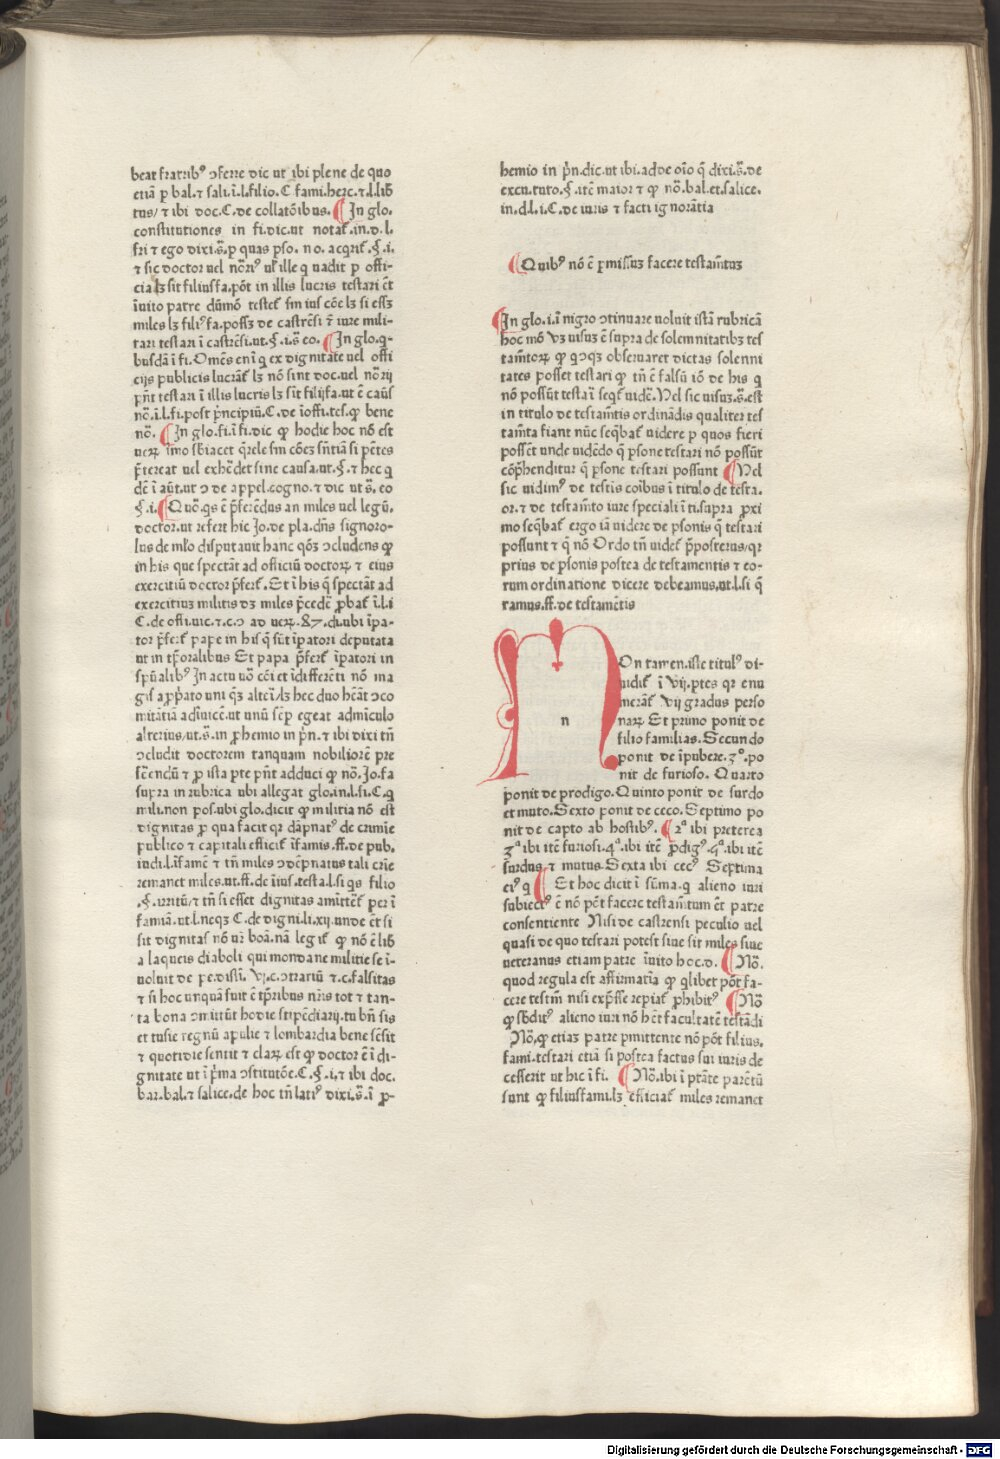 beat fratribꝰ ↄferre dic ut ibi plene de quo
etiã p bal.⁊ sali.ĩ.l.filio.C fami.herc.⁊.l.lib̃
tus/ ⁊ ibi doc.C.de collatõibus. ¶ Jn glo.
constitutiones in fi.dic.ut notat̃.in.d.l.
fri ⁊ ego dixi.s̃.p quas pso. no. acqrit̃.§.i.
⁊ sic doctor uel nõriꝰ ul̃ ille q uadit p offi-
cia lꝫ sit filiusfa.põt in illis lucris testari ẽt
ĩuito patre dũmõ testet̃ sm ius cõe lꝫ si essꝫ
miles lꝫ filiꝰfa.possꝫ de castrẽsi ⁊ iure mili-
tari testari ĩ castrẽsi.ut.§.i.s̃ eo. ¶ Jn glo.q-
busdã ĩ fi.Omẽs eni q ex dignitate uel offi
cijs publicis lucrãt̃ lꝫ nõ sint doc.uel nõrij
pñt testari ĩ illis lucris lꝫ sit filijfa.ut ẽ caũs
nõ.ĩ.l.fi.post pncipiũ.C.de ĩoffi.tes.ꝙ bene
nõ. ¶ Jn glo.fi.ĩ fi.dic ꝙ hodie hoc nõ est
ueꝝ ĩmo sb̃iacet q̃rele sm cões sñtiã si pẽtes
p̃tereat uel exhẽdet sine causa.ut.§.⁊ hec q
dẽ ĩ aũt.ut ↄ de appel.cogno.⁊ dic ut s̃. eo
§.i. ¶ Quõ.qs ẽ p̃ferẽdus an miles uel legũ.
doctor.ut refert hic Jo.de pla.dñs signoro-
lus de mlo disputauit hanc qõꝫ ↄcludens ꝙ
in his que spectãt ad officiũ doctoꝝ ⁊ eius
exercitiũ doctor p̃fert̃. Et ĩ his q̃ spectãt ad
exercitius militis dꝫ miles p̃cedẽ pbat̃ ĩ.l.i
C.de offi.uic.⁊.c.ↄ ad ueꝝ.87.di.ubi ĩpa-
tor p̃fert̃ pape in his q̃ sũt ĩpatori deputata
ut in tp̃oralibus Et papa p̃fert̃ ĩpatori in
spũalibꝰ Jn actu uõ cõi et ĩdifferẽti nõ ma
gis appato uni qꝫ alteĩ lꝫ hec duo hẽãt ↄco
mitãtiã adĩuicẽ.ut unũ semp egeat admĩculo
alterius.ut.s̃.in phemio in pñ.⁊ ibi dixi tñ
ↄcludit doctorem tanquam nobiliorẽ pre
fẽendũ ⁊ p ista pte pñt adduci ꝙ nõ.Jo.fa
supra in rubrica ubi allegat glo.in.l.si.C.q
mili.non pos.ubi glo.dicit ꝙ militia nõ est
dignitas p qua facit qr dãpnatꝰ de crimie
publico ⁊ capitali efficit̃ ĩfamis.ff.de pub.
iudi.l.ĩfamẽ ⁊ tñ miles ↄdẽpnatus tali crĩe
remanet miles.ut.ff.de ĩius.testa.l.si qs filio
.§.irritũ/⁊ tñ si esset dignitas amittẽt̃ per ĩ
famiã.ut.l.neqꝫ C.de digni.li.xij.unde ẽt si
sit dignitas nõ ur̃ boã.nã legit̃ ꝙ nõ ẽ lib̃
a laqueis diaboli qui mondane militie se ĩ-
uoluit de pe.disti. vj.c.ↄtrariũ ⁊.c.falsitas
⁊ si hoc unquã fuit ẽ tp̃ribus nr̃is tot ⁊ tan-
ta bona ↄmittũt hodie stipẽdiarij.tu bñ sis
et tusie regnũ apulie ⁊ lombardia bene sẽsit
⁊ quotidie sentit ⁊ claꝝ est ꝙ doctor ẽ ĩ di-
gnitate ut ĩ p̃ma ↄstitutõe.C.§.i.⁊ ibi doc.
bar.bal.⁊ salice.de hoc tñ latiꝰ dixi.s̃.ĩ p-
hemio in pñ.dic.ut ibi.ad de oĩo q̃ dixi.s̃.de
excu.tuto.§.itẽ maior ⁊ ꝙ nõ.bal.et.salice.
in.d.l.i.C.de iuris ⁊ facti ignorãtia
¶ Quibꝰ nõ ẽ pmissuꝫ facere testam̃tuꝫ
¶ Jn glo.i.ĩ nigro ↄtinuare uoluit istã rubricã
hoc mõ vꝫ uisuꝫ ẽ supra de solemnitatibꝫ tes
tam̃toꝝ ꝙ qↄqꝫ obseruaret dictas solenni
tates posset testari ꝙ tñ ẽ falsũ iõ de his q
nõ possũt testa ĩ seqt̃ uidẽ. Nel sic uisuꝫ.s̃.est
in titulo de testam̃tis ordinãdis qualiter tes
tam̃ta fiant nũc seq̃bat̃ uidere p quos fieri
possẽt unde uidẽdo q̃ psone testari nõ possũt
cõp̃henditur q̃ psone testari possunt ¶ Nel
sic uidimꝰ de testis coĩbus ĩ titulo de testa.
or.⁊ de testam̃to iure speciali ĩ ti.supra pxi
mo seq̃bat̃ ergo iã uidere de psonis q̃ testari
possunt ⁊ q̃ nõ Ordo tñ uidet̃ p̃posterus/qr
prius de psonis postea de testamentis ⁊ eo-
rum ordinatione dicere debeamus.ut.l.si q̃
ramus.ff.de testamẽtis
n
On tamen.iste titulꝰ di-
uidit̃ ĩ vij.ptes qr enu
merãt̃ vij gradus perso
naꝝ Et primo ponit de
filio familias.Secundo
ponit de ĩpubere.3°.po
nit de furioso. Quarto
ponit de prodigo.Quinto ponit de surdo
et muto.Sexto ponit de ceco.Septimo po
nit de capto ab hostibꝰ. ¶ 2ª ibi preterea
3ª ibi itẽ furiosi.4ª.ibi itẽ pdigꝰ.5ª.ibi itẽ
surdus ⁊ mutus.Sexta ibi cecꝰ Septima
eiꝰ q ¶ Et hoc dicit ĩ sũma.q alieno iuri
subiectꝰ ẽ nõ põt facere testam̃tum ẽt patre
consentiente Nisi de castrensi peculio uel
quasi de quo testari potest siue sit miles siue
ueteranus etiam patre ĩuito hoc.d. ¶ Nõ.
quod regula est affirmatĩa ꝙ qlibet põt fa-
cere testm̃ nisi exp̃sse repiat̃ phibitꝰ ¶ Nõ
ꝙ sb̃ditꝰ alieno iuri nõ hẽt facultatẽ testãdi
Nõ.ꝙ etiaꝫ patre pmittente nõ põt filius.
fami.testari etiã si postea factus sui iuris de
cesserit ut hic ĩ fi. ¶ Nõ.ibi ĩ ptãte parẽtũ
sunt ꝙ filiusfami.lꝫ efficiat̃ miles remanet
Digitalisierung gefördert durch die Deutsche Forschungsgemeinschaft - DFG